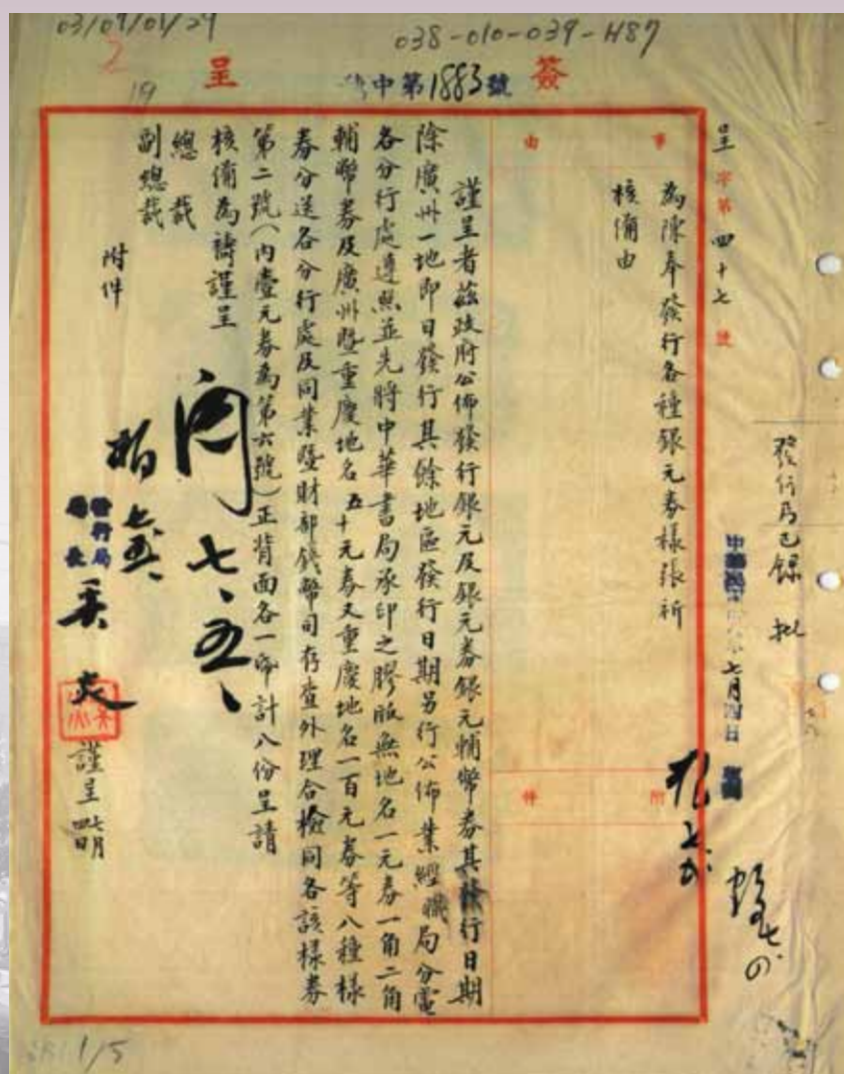 03/09/01/29
038-010-039-H87
2
19
簽 呈
中第1883號
呈字第四十七號
發行局已錄 批
七月四日
事由
為陳奉發行各種銀元券樣張祈
核備由
附件
謹呈者茲政府公佈發行銀元及銀元券銀元輔幣券其發行日期
除廣州一地即日發行其餘地區發行日期另行公佈業經職局分電
各分行處遵照並先將中華書局承印之膠版無地名一元券一角二角
輔幣券及廣州暨重慶地名五十元券又重慶地名一百元券等八種樣
券分送各分行處及同業暨財部錢幣司存查外理合檢同各該樣券
第二號(內壹元券為第六號)正背面各一份計八份呈請
核備為禱謹呈
總裁
副總裁
附件
發行局
局長
謹呈 七月四日
1/5